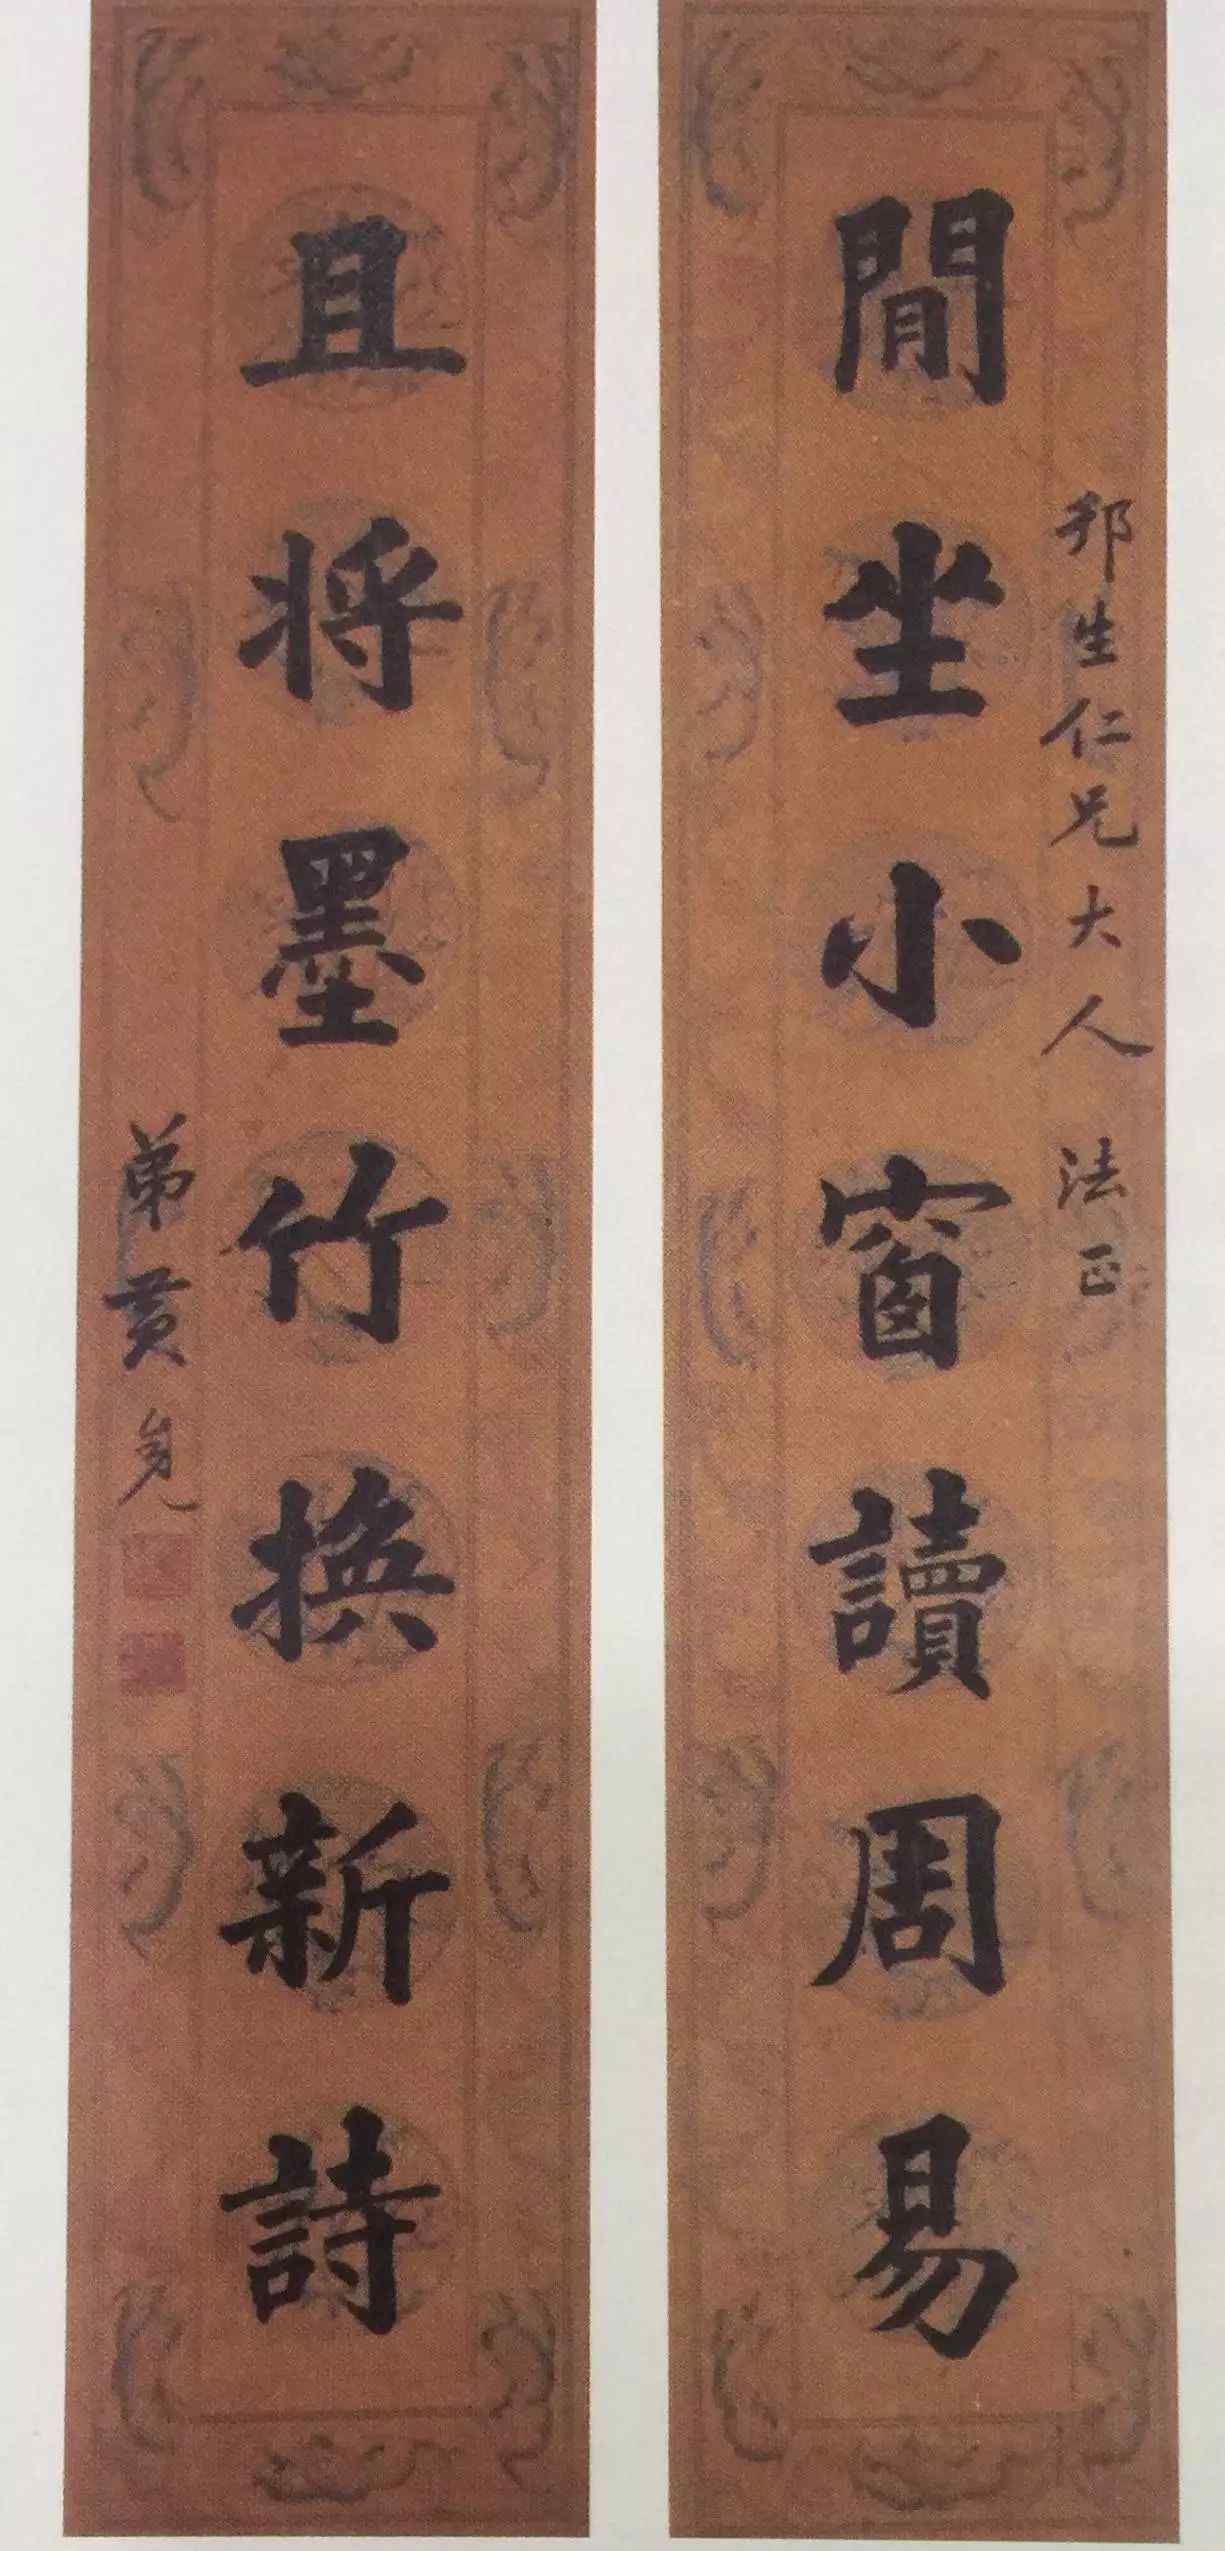 邦生仁兄大人 法正
閒坐小窗讀周易
且将墨竹換新詩
弟黄